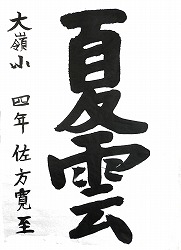 夏雲
大嶺小 四年 佐方寛至